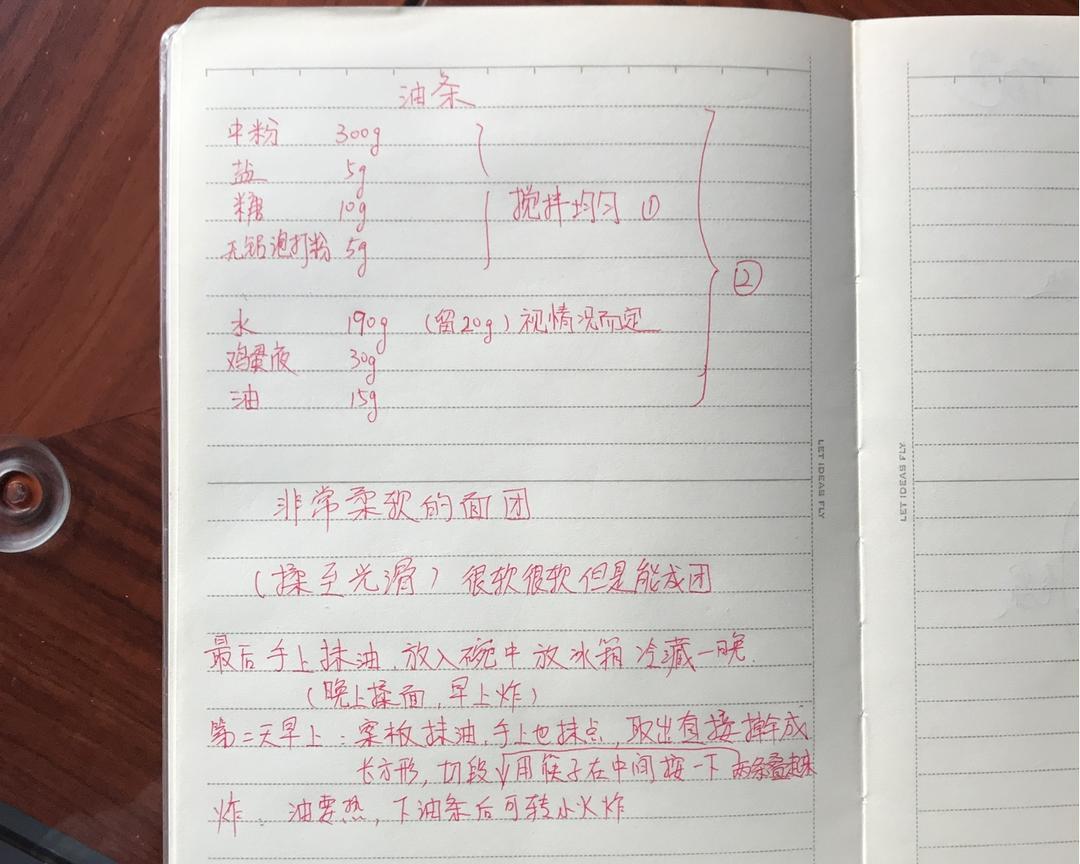 油条
中粉 300g
盐 5g
糖 10g
搅拌均匀 ①
无铝泡打粉 5g
②
水 190g (留20g) 视情况而定
鸡蛋液 30g
油 15g
非常柔软的面团
(揉至光滑) 很软很软但是能成团
最后手上抹油,放入碗中放冰箱冷藏一晚.
(晚上揉面,早上炸)
第二天早上:案板抹油,手上也抹点,取出直接擀成
长方形,切段√用筷子在中间按一下 两条叠起来
炸:油要热,下油条后可转小火炸
LET IDEAS FLY
LET IDEAS FLY